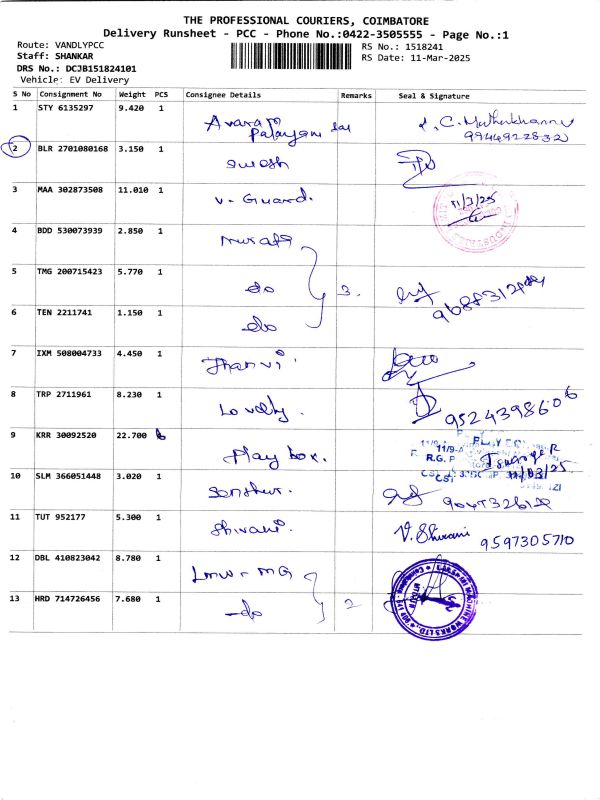 THE PROFESSIONAL COURIERS, COIMBATORE
Delivery Runsheet - PCC - Phone No.:0422-3505555 - Page No.:1
Route: VANDLYPCC
Staff: SHANKAR
DRS No.: DCJB151824101
Vehicle: EV Delivery
RS No.: 1518241
RS Date: 11-Mar-2025
S No Consignment No Weight PCS Consignee Details Remarks Seal & Signature
1 STY 6135297 9.420 1 Avaram Palayam
9944922832
2 BLR 2701080168 3.150 1 Suresh
3 MAA 302873508 11.010 1 V-Guard. 11/3/25
4 BDD 530073939 2.850 1
5 TMG 200715423 5.770 1 do 3.
6 TEN 2211741 1.150 1 do
7 IXM 508004733 4.450 1 Jhanvi
8 TRP 2711961 8.230 1 Lovely. 9524398606
9 KRR 30092520 22.700 Play box.
11/03/25
10 SLM 366051448 3.020 1
11 TUT 952177 5.300 1 Shivani. V. Shivani 9597305710
12 DBL 410823042 8.780 1 LMW-MG
13 HRD 714726456 7.680 1 do 2